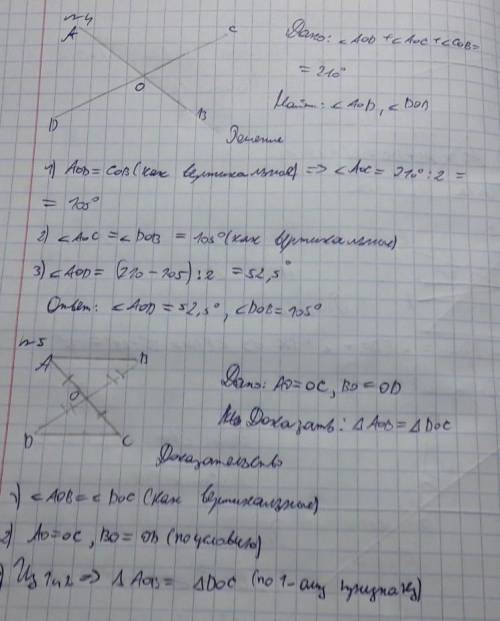 №4
A
C
O
D
B
Дано: ∠AOD + ∠AOC + ∠COB =
= 210°
Найти: ∠AOD, ∠DOB
Решение
1) AOD = COB (как вертикальные) => ∠AOC = 210° : 2 =
= 105°
2) ∠AOC = ∠DOB = 105° (как вертикальные)
3) ∠AOD = (210 - 105) : 2 = 52,5°
Ответ: ∠AOD = 52,5°, ∠DOB = 105°
№5
A
B
O
D
C
Дано: AO = OC, BO = OD
Доказать: △AOB = △DOC
Доказательство
1) ∠AOB = ∠DOC (как вертикальные)
2) AO = OC, BO = OD (по условию)
) Из 1 и 2 => △AOB = △DOC (по 1-ому признаку)